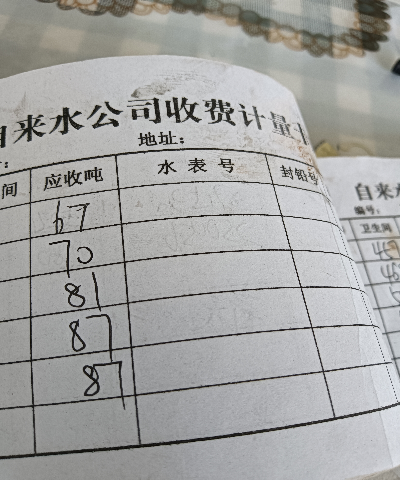 自来水公司收费计量卡
地址：
间 应收吨 水表号 封铅号
67
70
81
87
87
自来水
编号：
卫生间